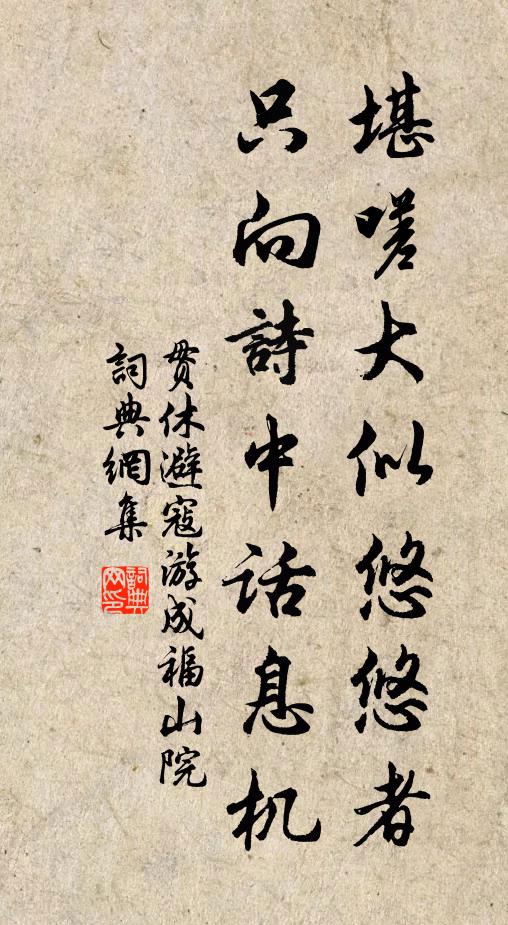 堪嗟大似悠悠者
只向詩中话息机
贯休避寇游成福山院
詞典網集
詞典
网印